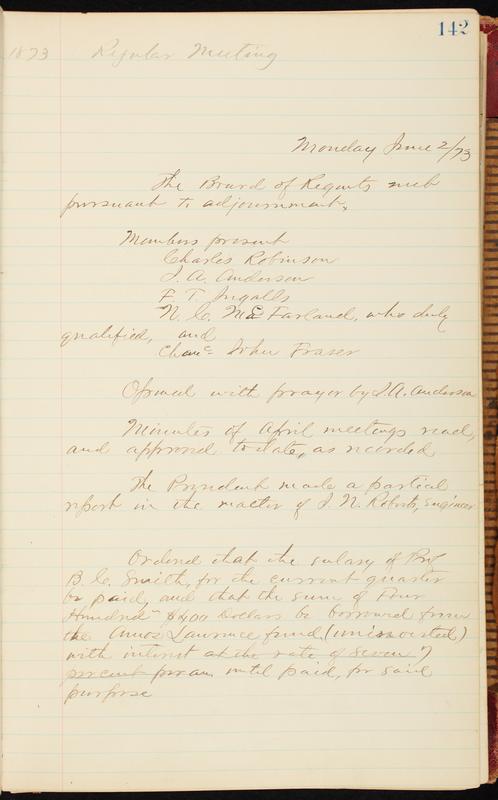 142
1873 Regular Meeting
Monday June 2/73
The Board of Regents met
pursuant to adjournment.
Members present
Charles Robinson
J. A. Anderson
F. T. Ingalls
N. C. McFarland, who duly
qualified, and
Chanc. John Fraser
Opened with prayer by J. A. Anderson
Minutes of April meetings read,
and approved to date, as recorded
The President made a partial
report in the matter of J. N. Roberts, Engineer
Ordered that the salary of Prof
B. C. Smith, for the current quarter
be paid, and that the sum of Four
Hundred $400 Dollars be borrowed from
the Amos Lawrence fund (uninvested)
with interest at the rate of seven 7
percent per an until paid, for said
purpose